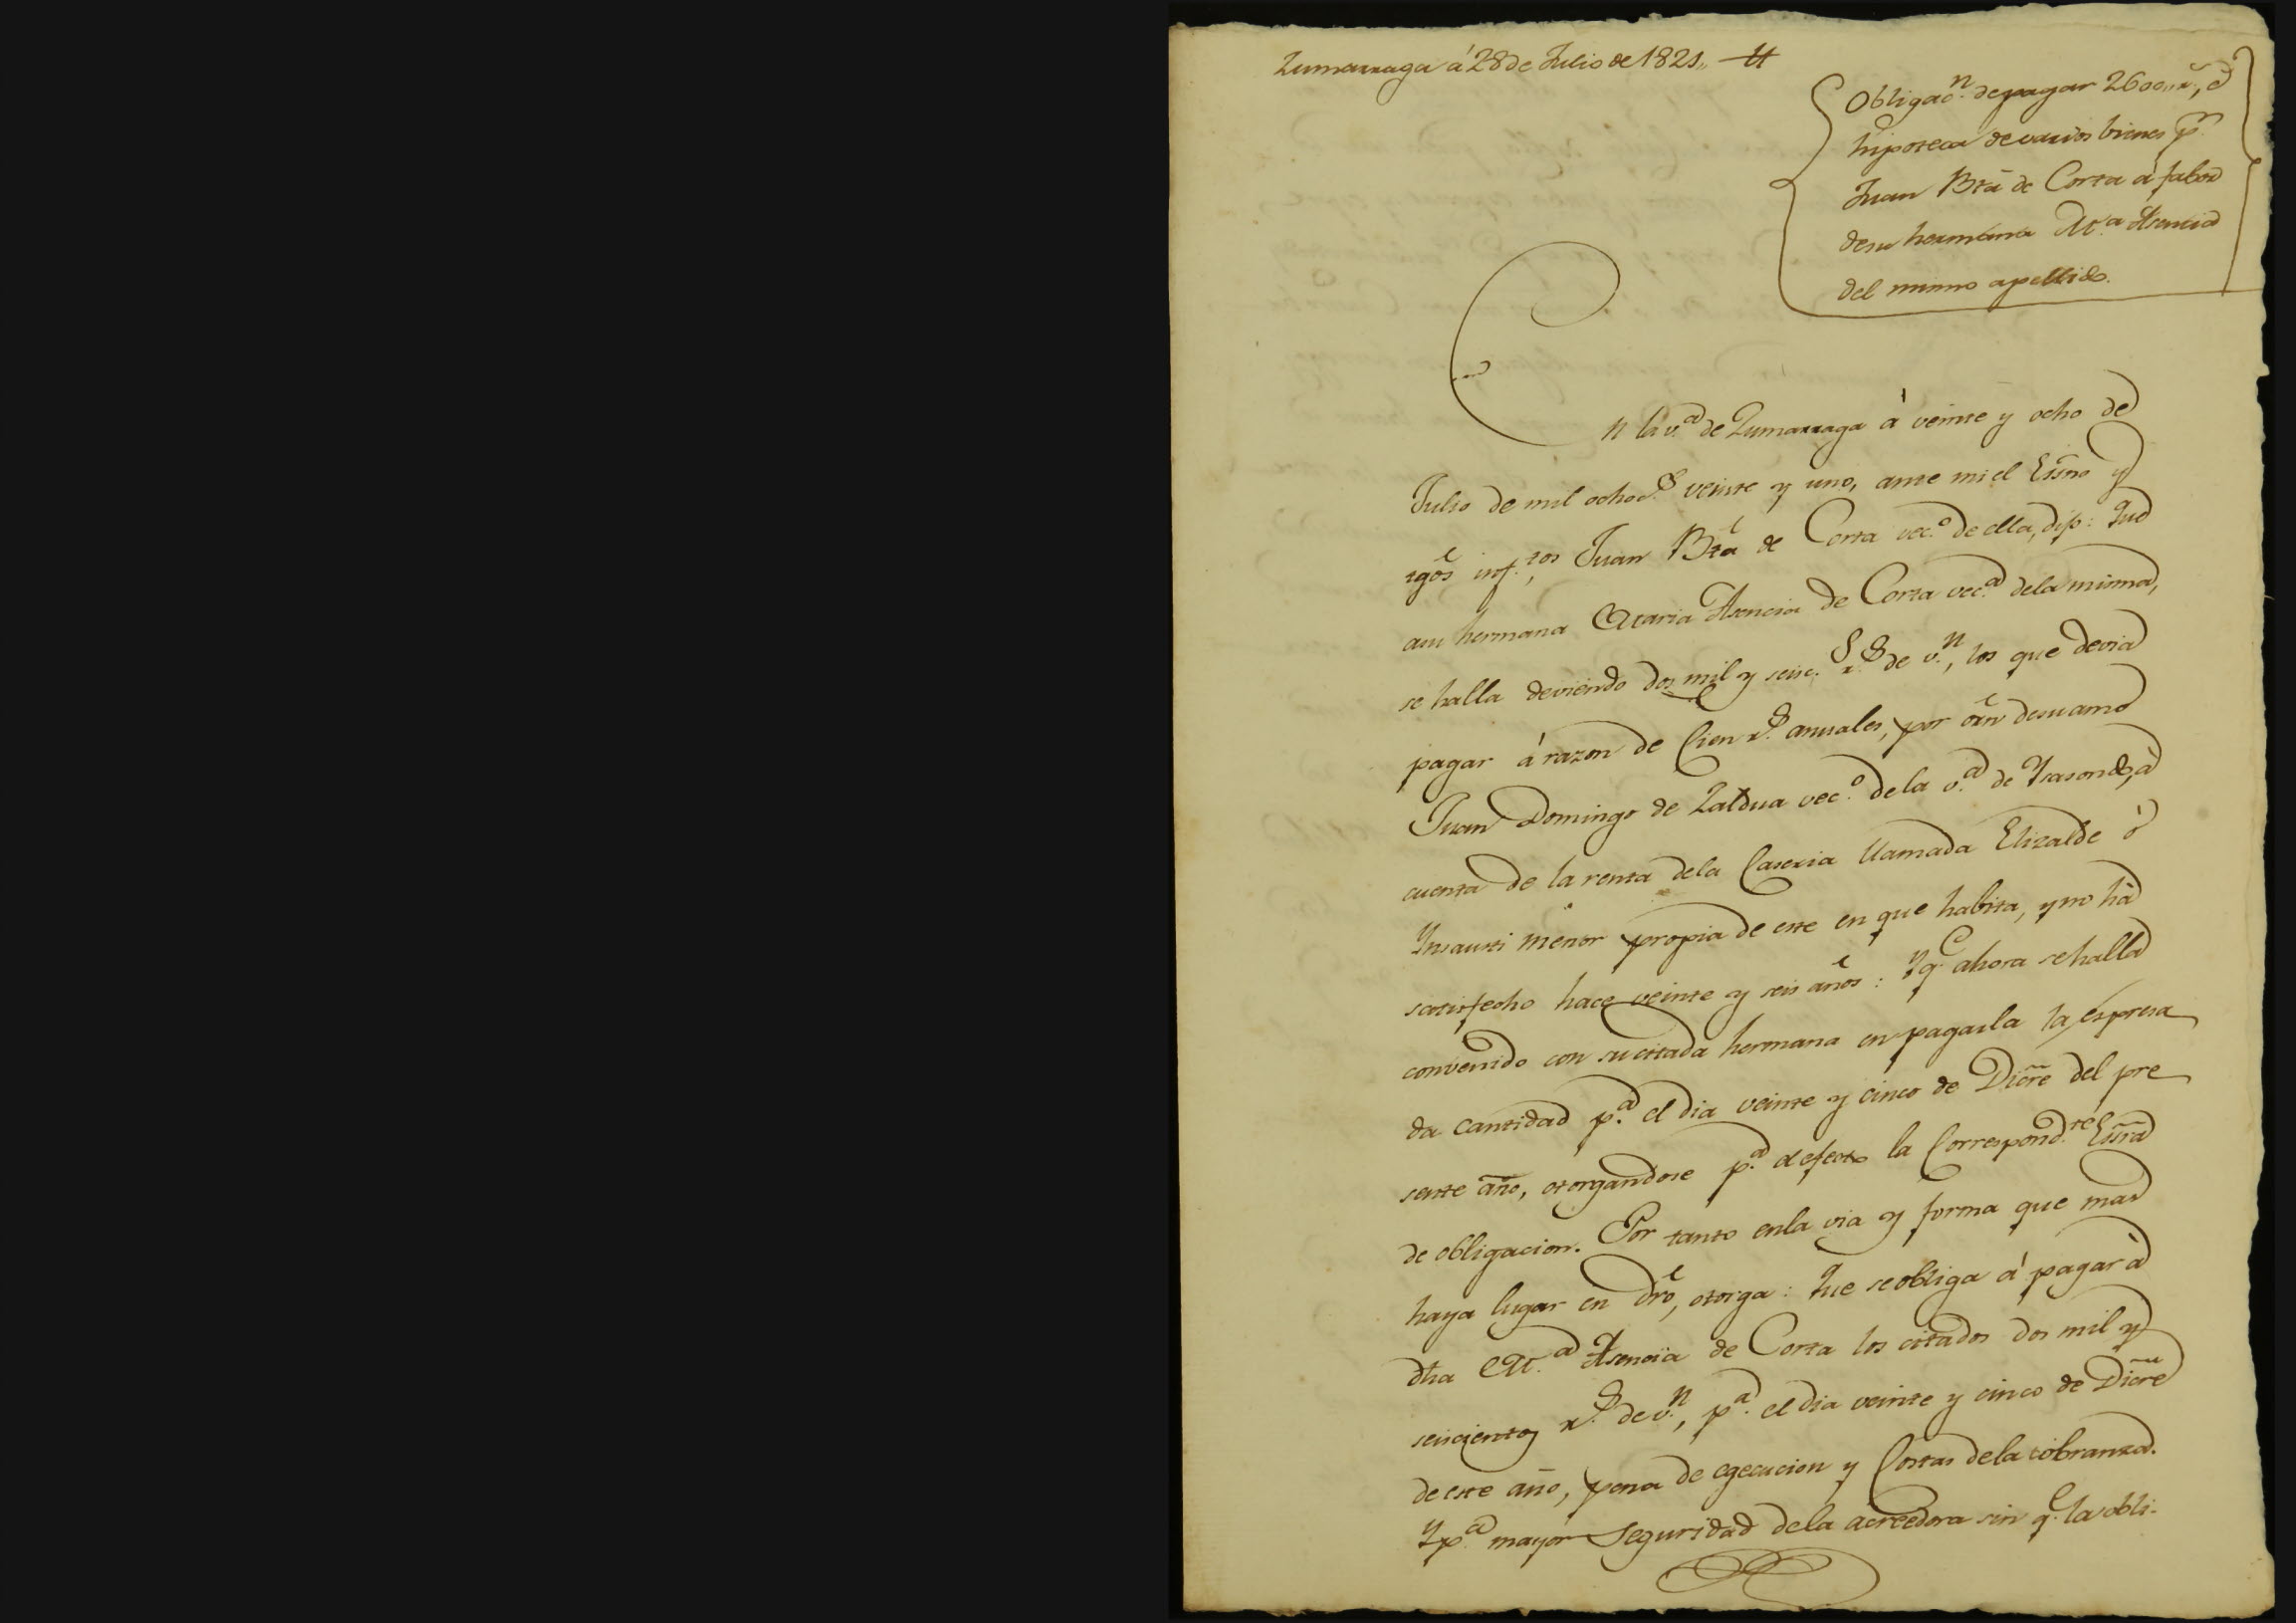 Zumarraga á 28 de Julio de 1821,, #
Obligac.n de pagar 2600,, r.s, é
hipoteca de varios bienes p.r
Juan Bta de Corta á fabor
de su hermana M.a Asencia
del mismo apellido.
En la v.a de Zumarraga á veinte y ocho de
Julio de mil ochoc.s veinte y uno, ante mi el Essno y
tgos inf.tos, Juan Bta de Corta vec.o de ella, dijo: Que
a su hermana Maria Asencia de Corta vec.a de la misma,
se halla deviendo dos mil y seisc.s r.s de v.n, los que devia
pagar á razon de Cien r.s anuales, por orn de su amo
Juan Domingo de Zaldua vec.o de la v.a de Ysasondo, á
cuenta de la renta de la Caseria llamada Elizalde ó
Ynsausti menor propia de este en que habita, y no há
satisfecho hace veinte y seis años: Y q.e ahora se halla
convenido con su citada hermana en pagarla la expresa
da cantidad p.a el dia veinte y cinco de Dicre del pre
sente año, otorgandose p.a el efecto la Correspond.te Essra
de obligacion. Por tanto en la via y forma que mas
haya lugar en dro, otorga: Que se obliga á pagar á
dha M.a Asencia de Corta los citados dos mil y
seiscientos r.s de v.n, p.a el dia veinte y cinco de Dicre
de este año, pena de egecucion y Costas de la cobranza.
Y p.a mayor Seguridad de la acreedora sin q.e la obli-